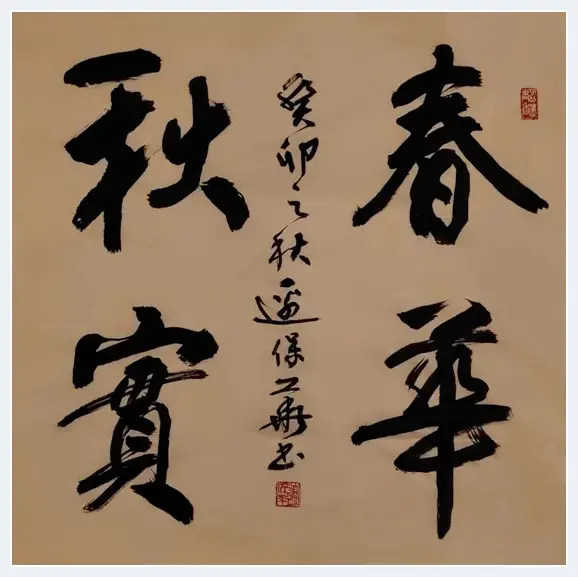 春華
秋實
癸卯之秋邊保華書